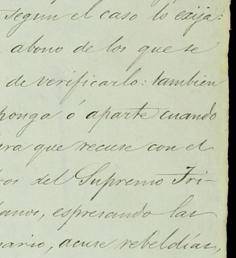 segun el caso lo exija:
abono de los que se
de verificarlo: tambien
ponga ó aparte cuando
ra que recuse con el
ros del Supremo Tri-
banos, espresando las
nario, acuse rebeldias,